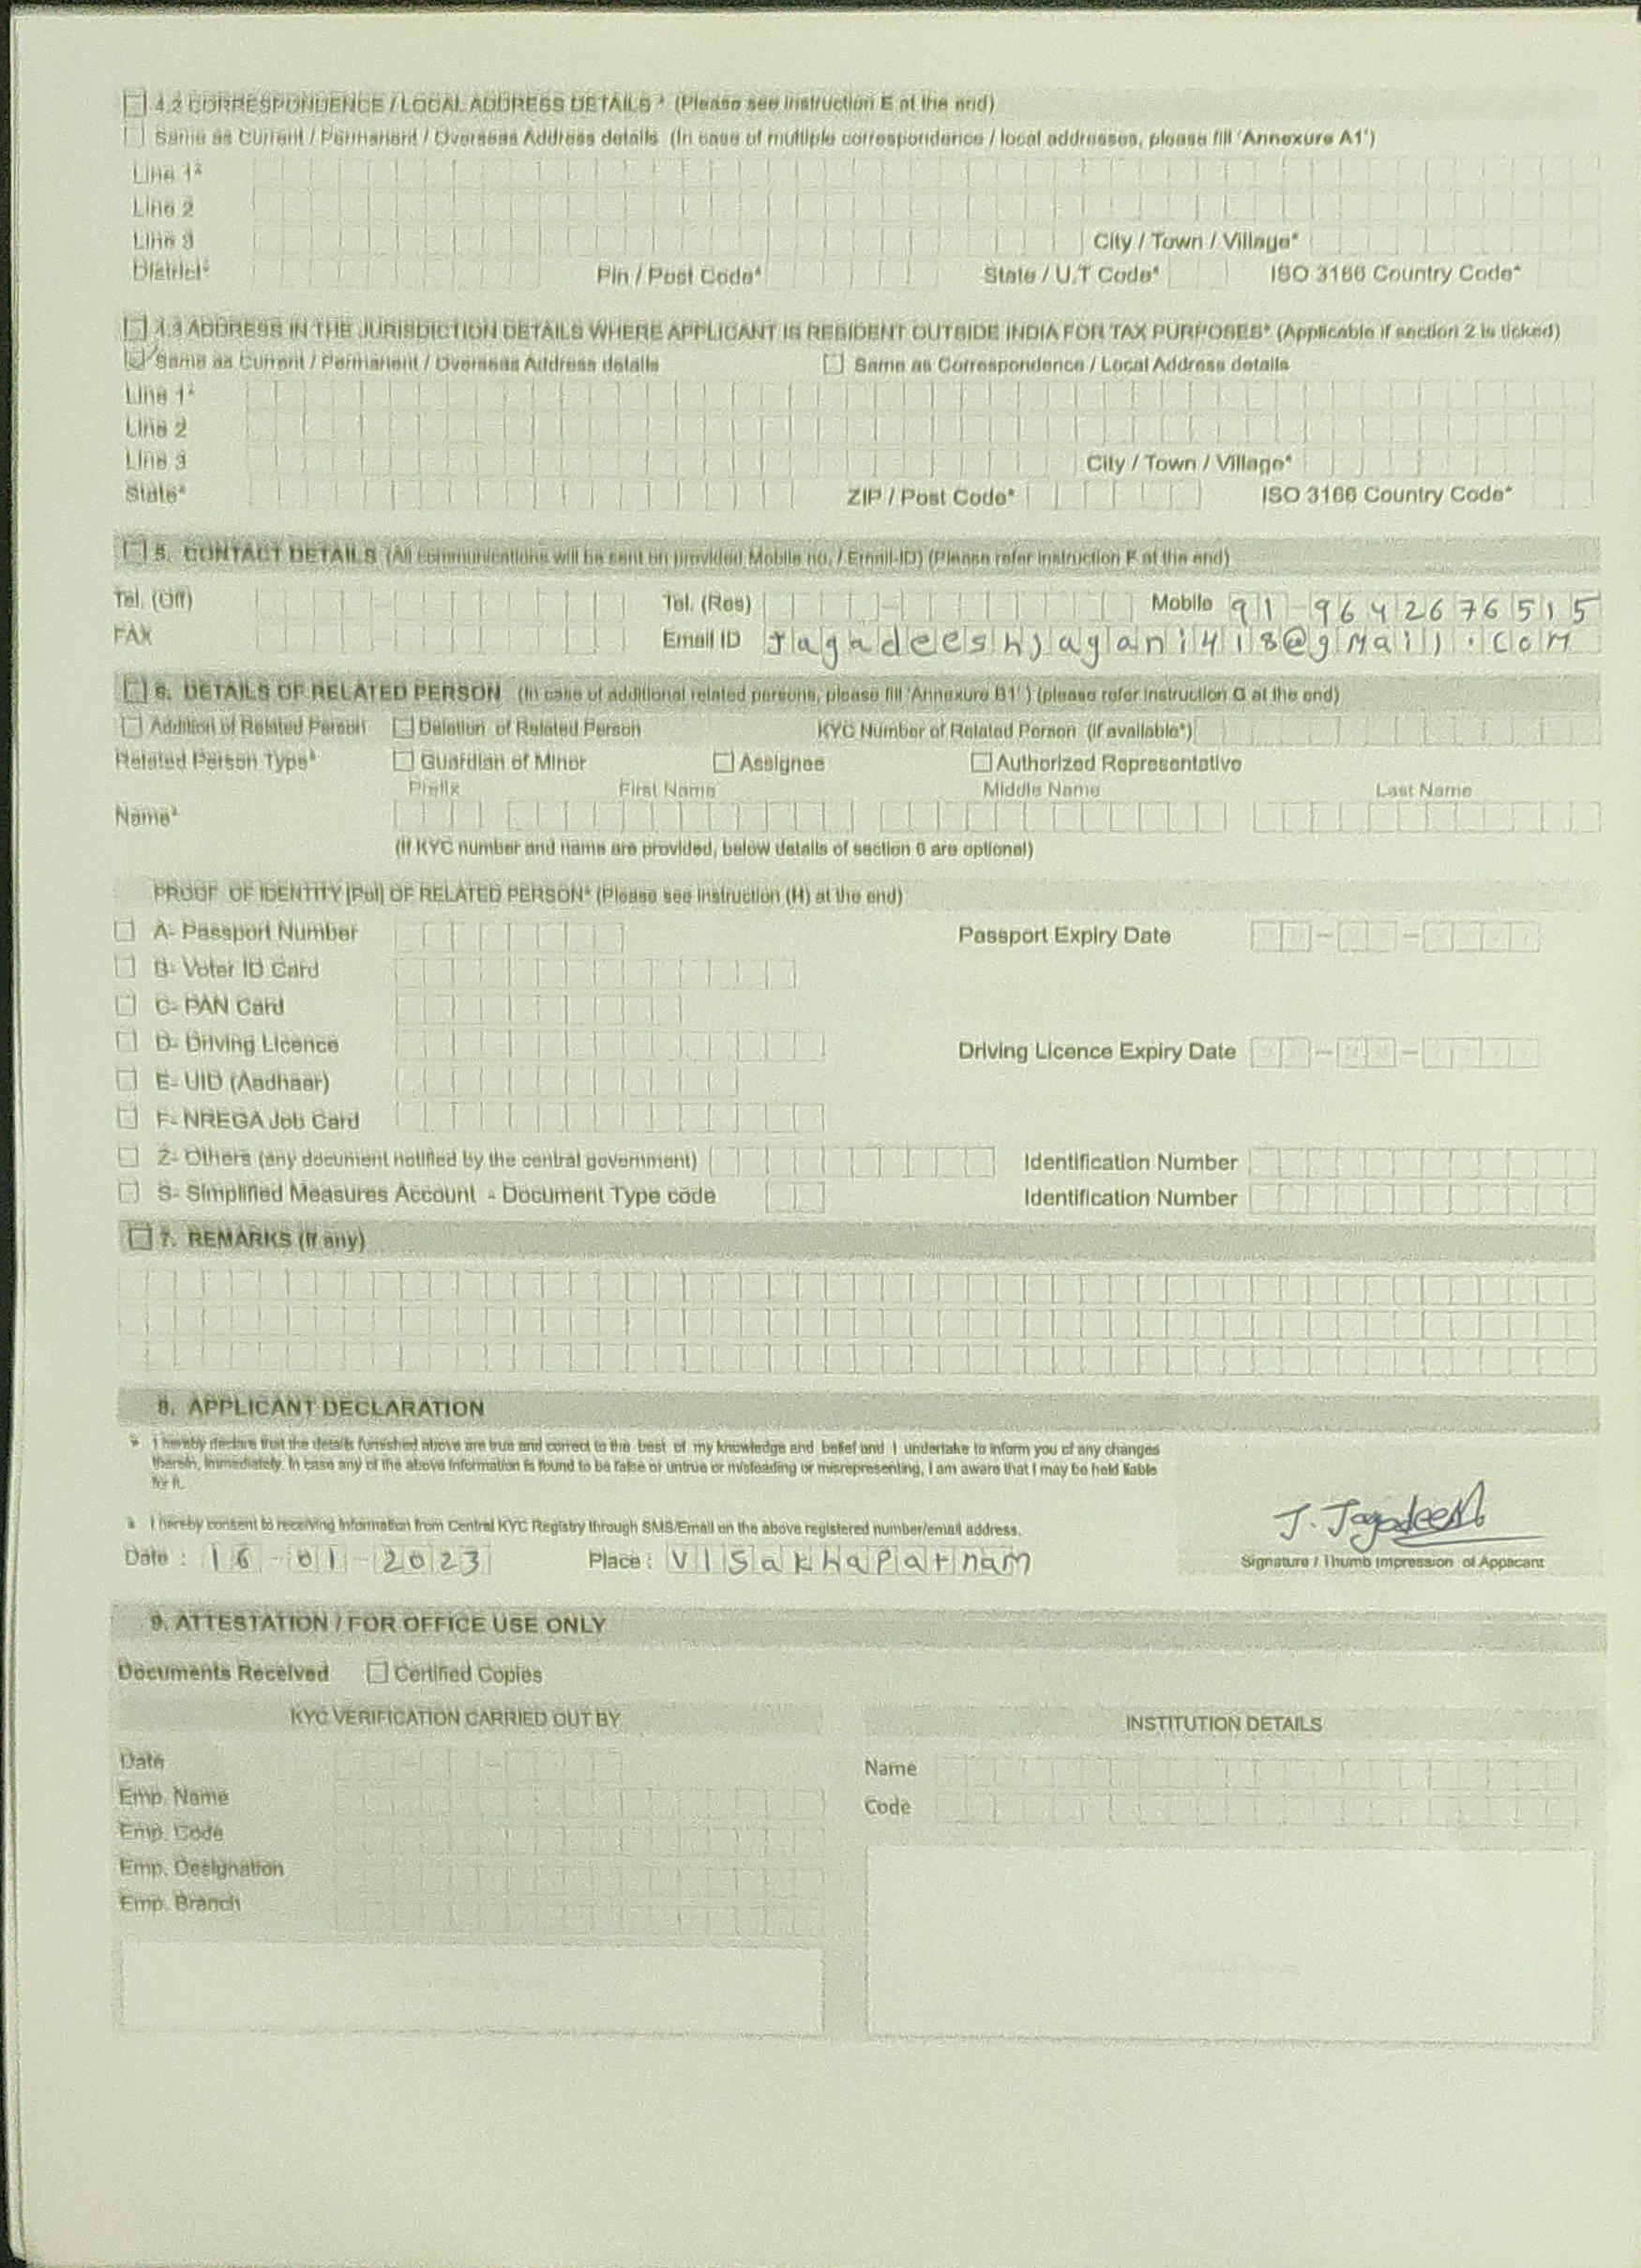 4.2 CORRESPONDENCE / LOCAL ADDRESS DETAILS * (Please see instruction E at the end)
Same as Current / Permanent / Overseas Address details (In case of multiple correspondence / local addresses, please fill 'Annexure A1')
Line 1*
Line 2
Line 3 City / Town / Village*
District* Pin / Post Code* State / U.T Code* ISO 3166 Country Code*
4.3 ADDRESS IN THE JURISDICTION DETAILS WHERE APPLICANT IS RESIDENT OUTSIDE INDIA FOR TAX PURPOSES* (Applicable if section 2 is ticked)
Same as Current / Permanent / Overseas Address details Same as Correspondence / Local Address details
Line 1*
Line 2
Line 3 City / Town / Village*
State* ZIP / Post Code* ISO 3166 Country Code*
5. CONTACT DETAILS (All communications will be sent on provided Mobile no. / Email-ID) (Please refer instruction F at the end)
Tel. (Off) Tel. (Res) Mobile 91 9642676515
FAX Email ID Jagadeeshjagani418@gmail.com
6. DETAILS OF RELATED PERSON (In case of additional related persons, please fill 'Annexure B1' ) (please refer instruction G at the end)
Addition of Related Person Deletion of Related Person KYC Number of Related Person (if available*)
Related Person Type* Guardian of Minor Assignee Authorized Representative
Prefix First Name Middle Name Last Name
Name*
(If KYC number and name are provided, below details of section 6 are optional)
PROOF OF IDENTITY [PoI] OF RELATED PERSON* (Please see instruction (H) at the end)
A- Passport Number Passport Expiry Date
B- Voter ID Card
C- PAN Card
D- Driving Licence Driving Licence Expiry Date
E- UID (Aadhaar)
F- NREGA Job Card
Z- Others (any document notified by the central government) Identification Number
S- Simplified Measures Account - Document Type code Identification Number
7. REMARKS (If any)
8. APPLICANT DECLARATION
I hereby declare that the details furnished above are true and correct to the best of my knowledge and belief and I undertake to inform you of any changes
therein, immediately. In case any of the above information is found to be false or untrue or misleading or misrepresenting, I am aware that I may be held liable
for it.
I hereby consent to receiving information from Central KYC Registry through SMS/Email on the above registered number/email address.
J. Jagadeesh
Date : 16-01-2023 Place : Visakhapatnam Signature / Thumb Impression of Applicant
9. ATTESTATION / FOR OFFICE USE ONLY
Documents Received Certified Copies
KYC VERIFICATION CARRIED OUT BY INSTITUTION DETAILS
Date Name
Emp. Name Code
Emp. Code
Emp. Designation
Emp. Branch